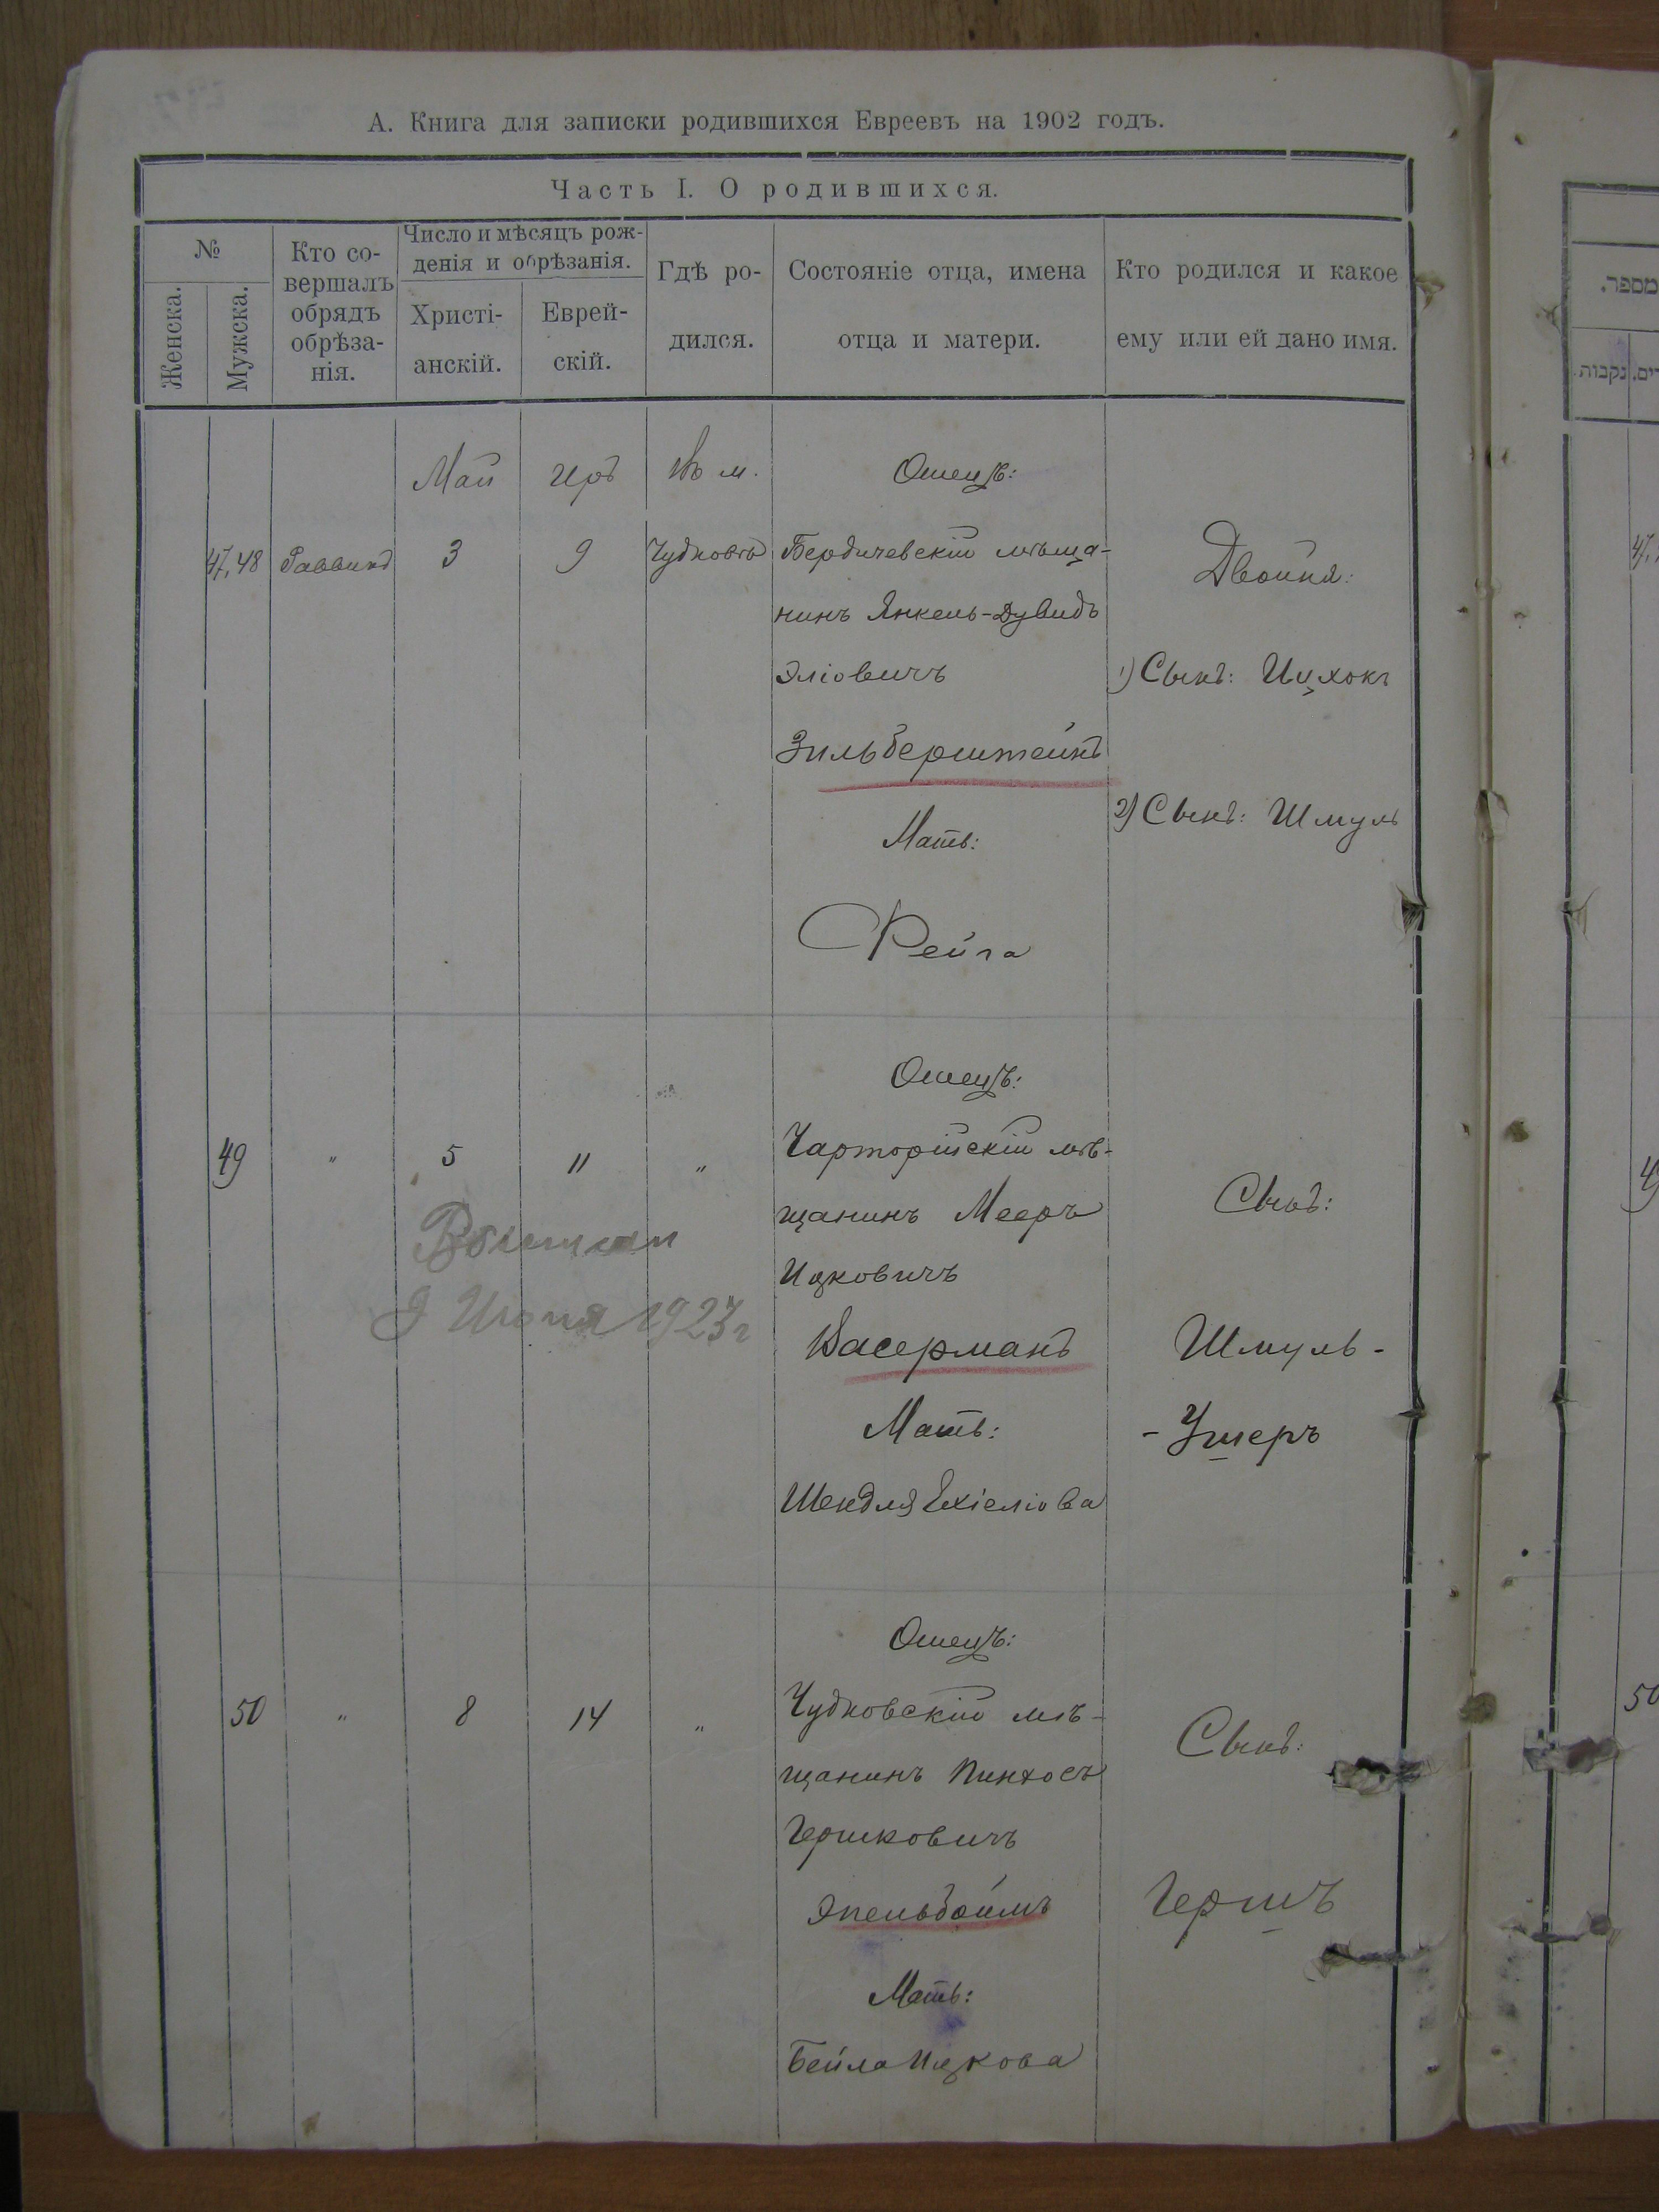 А. Книга для записки родившихся Евреевъ на 1902 годъ.
Часть I. О родившихся.
№
Женска.
Мужска.
Кто со-
вершалъ
обрядъ
обрѣза-
нія.
Число и мѣсяцъ рож-
денія и обрѣзанія.
Христі-
анскій.
Еврей-
скій.
Гдѣ ро-
дился.
Состояніе отца, имена
отца и матери.
Кто родился и какое
ему или ей дано имя.
Май Іръ Въ м. Отецъ:
47,48 Раввинъ 3 9 Чудновѣ Бердичевскій мѣща-
нинъ Янкель-Дувидъ
Эліовичъ
Зильберштейнъ
Мать:
Фейга
Двойня:
1) Сынъ: Ицхокъ
2) Сынъ: Шмуль
Отецъ:
49 " 5 11 " Чарторійскій мѣ-
щанинъ Мееръ
Ицковичъ
Васерманъ
Мать:
Шендля Ехіеліова
Сынъ:
Шмуль-
-Ушеръ
9 Июня 1923 г
Отецъ:
50 " 8 14 " Чудновскій мѣ-
щанинъ Пинхосъ
Гершковичъ
Эпельбоймъ
Мать:
Бейла Ицкова
Сынъ:
Гершъ
מספר.
נקבות
47,
49
50